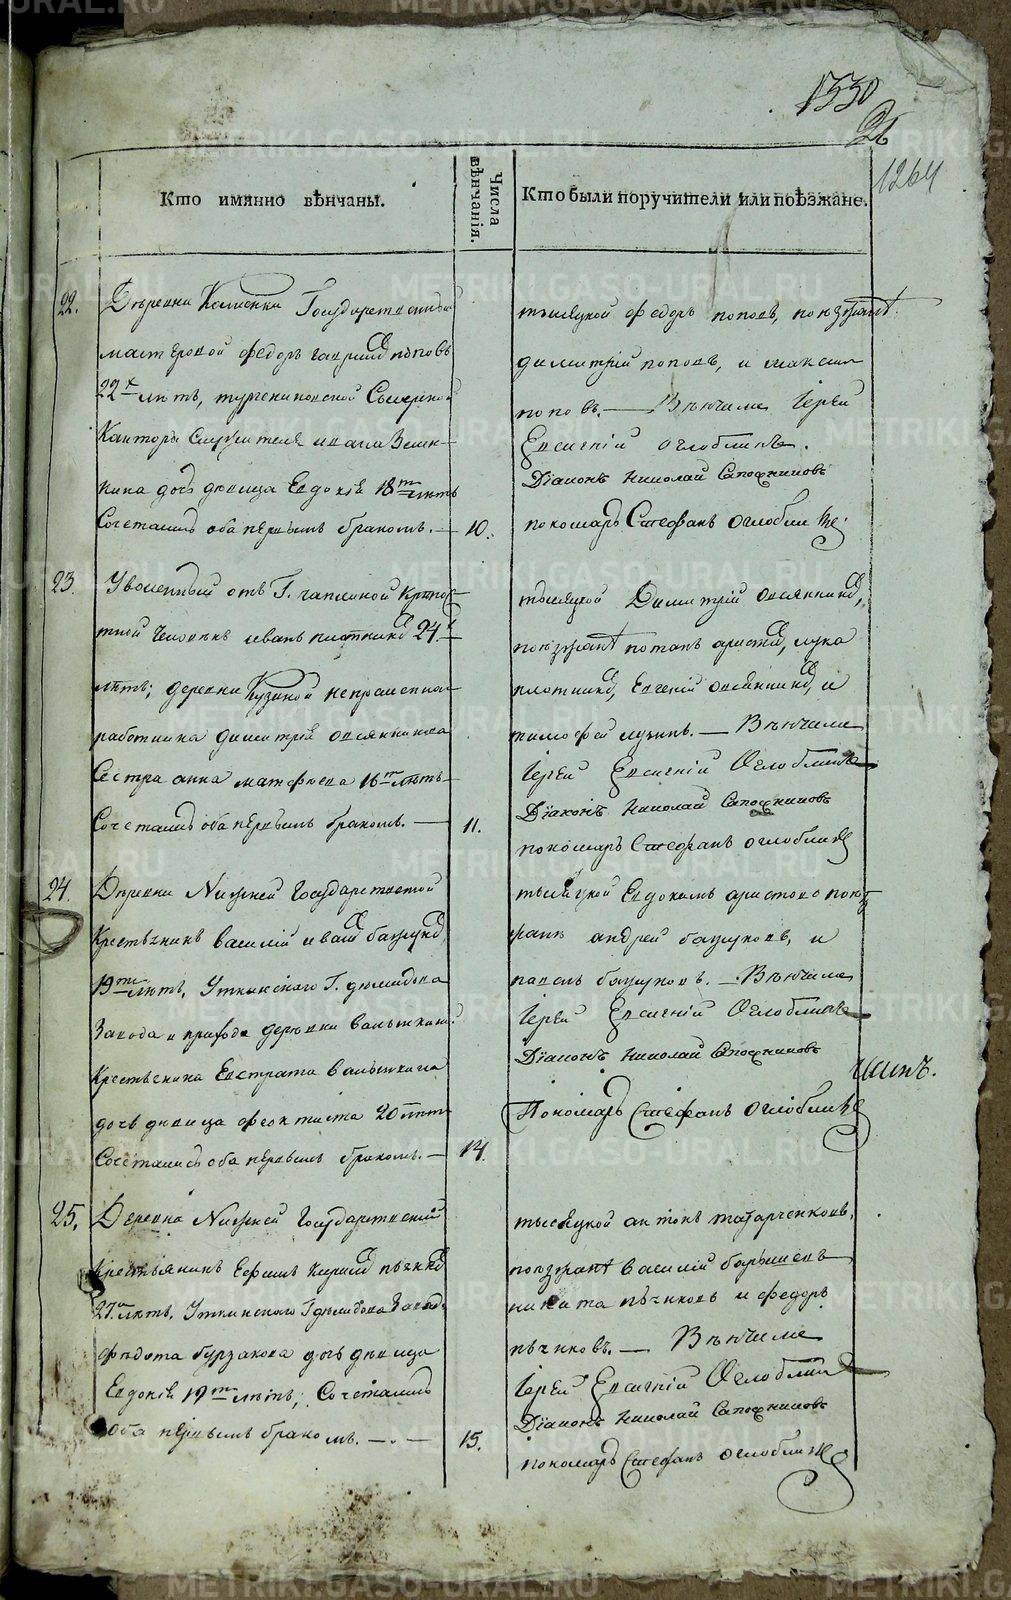 1330
26
1264
Кто имянно вѣнчаны.
Числа вѣнчанія.
Кто были поручители или поѣзжане.
22. Деревни Каменки Государственной
мастеровой федоръ гаврил поповъ
22х лѣтъ,
Конторы Служителя ивана Зенк-
кина дочь девица Евдокія 18ти лѣтъ
Сочетались оба первымъ бракомъ. — 10.
тысяцкой федоръ поповъ, поѣзжант
димитрій поповъ, и максим
поповъ. — Вѣнчали Іерей
Евгеній оглоблинъ.
Діаконъ Николай Сапожниковъ
пономарь Стефанъ оглоблин
23. Уволенный отъ Г. крѣпос-
тной человѣкъ иванъ плотник 24х
лѣтъ; деревни Кузиной непремѣннаго
работника димитрія овсянникова
Сестра анна матфеева 16ти лѣтъ
Сочетались оба первымъ бракомъ. — 11.
тысяцкой Димитрій овсянник,
поѣзжант потапъ аристов, лука
плотник, Евгеній овсянник, и
тимофей лузинъ. — Вѣнчали
Іерей Евгеній Оглоблинъ
Діаконъ Николай Сапожниковъ
пономарь Стефанъ оглоблин
24. Деревни Нижней Государственной
Крестьянинъ василій иван бажуков
19ти лѣтъ, Уткинскаго Г. демидова
Завода и прихода деревни
Крестьянина Евстрата
дочь девица феоктиста 20 лѣтъ
Сочетались оба первымъ бракомъ. — 14.
тысяцкой Евдокимъ аристовъ поѣз-
жанъ андрей бажуковъ, и
павелъ бажуковъ. — Вѣнчали
Іерей Евгеній Оглоблинъ
Діаконъ Николай Сапожниковъ
Пономарь Стефанъ оглоблин
25. Деревни Нижней Государственной
Крестьянинъ Ефимъ Кирил пѣчков
27 лѣтъ, Уткинскаго Г демидова Завода
федота бурзакова дочь девица
Евдокія 19ти лѣтъ; Сочетались
оба первымъ бракомъ. — 15.
тысяцкой антонъ татарченковъ,
поѣзжант василій
никита пѣчковъ и федоръ
пѣчковъ. — Вѣнчали
Іерей Евгеній Оглоблин
Діаконъ Николай Сапожниковъ
пономарь Стефанъ оглоблин